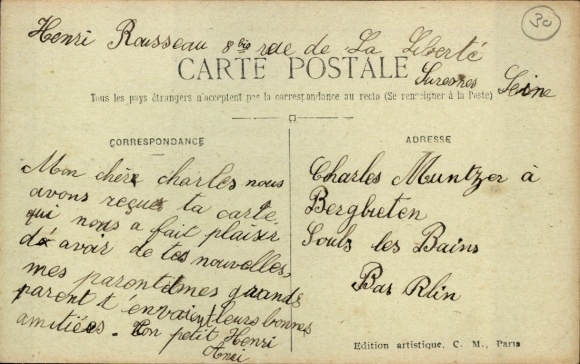 30
Henri Rousseau 8 bis rue de La Liberté
Suresnes Seine
CARTE POSTALE
Tous les pays étrangers n'acceptent pas la correspondance au recto (Se renseigner à la Poste)
CORRESPONDANCE
Mon chère charles nous
avons reçue ta carte
qui nous a fait plaisir
d'avoir de tes nouvelles,
mes parent mes grands
parent t'envaient leurs bonnes
amitiées. Ton petit Henri
ADRESSE
Charles Muntzer à
Bergbieten
Soulz les Bains
Bas Rhin
Edition artistique, C. M., Paris